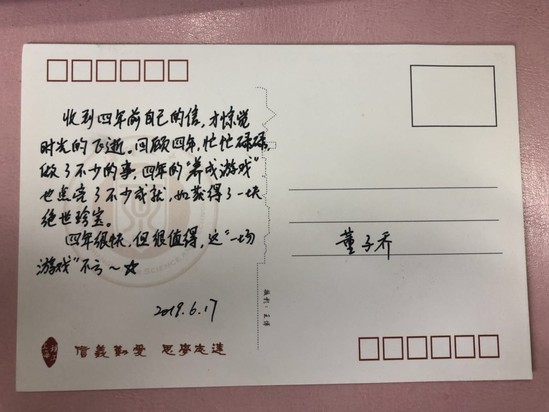 收到四年前自己的信，才惊觉
时光的飞逝。回顾四年，忙忙碌碌，
做了不少的事，四年的“养成游戏”
也点亮了不少成就，如获得了一块
绝世珍宝。
四年很快，但很值得，这“一场
游戏”不亏～☆
2019.6.17
董子乔
信義勤愛 思學志遠